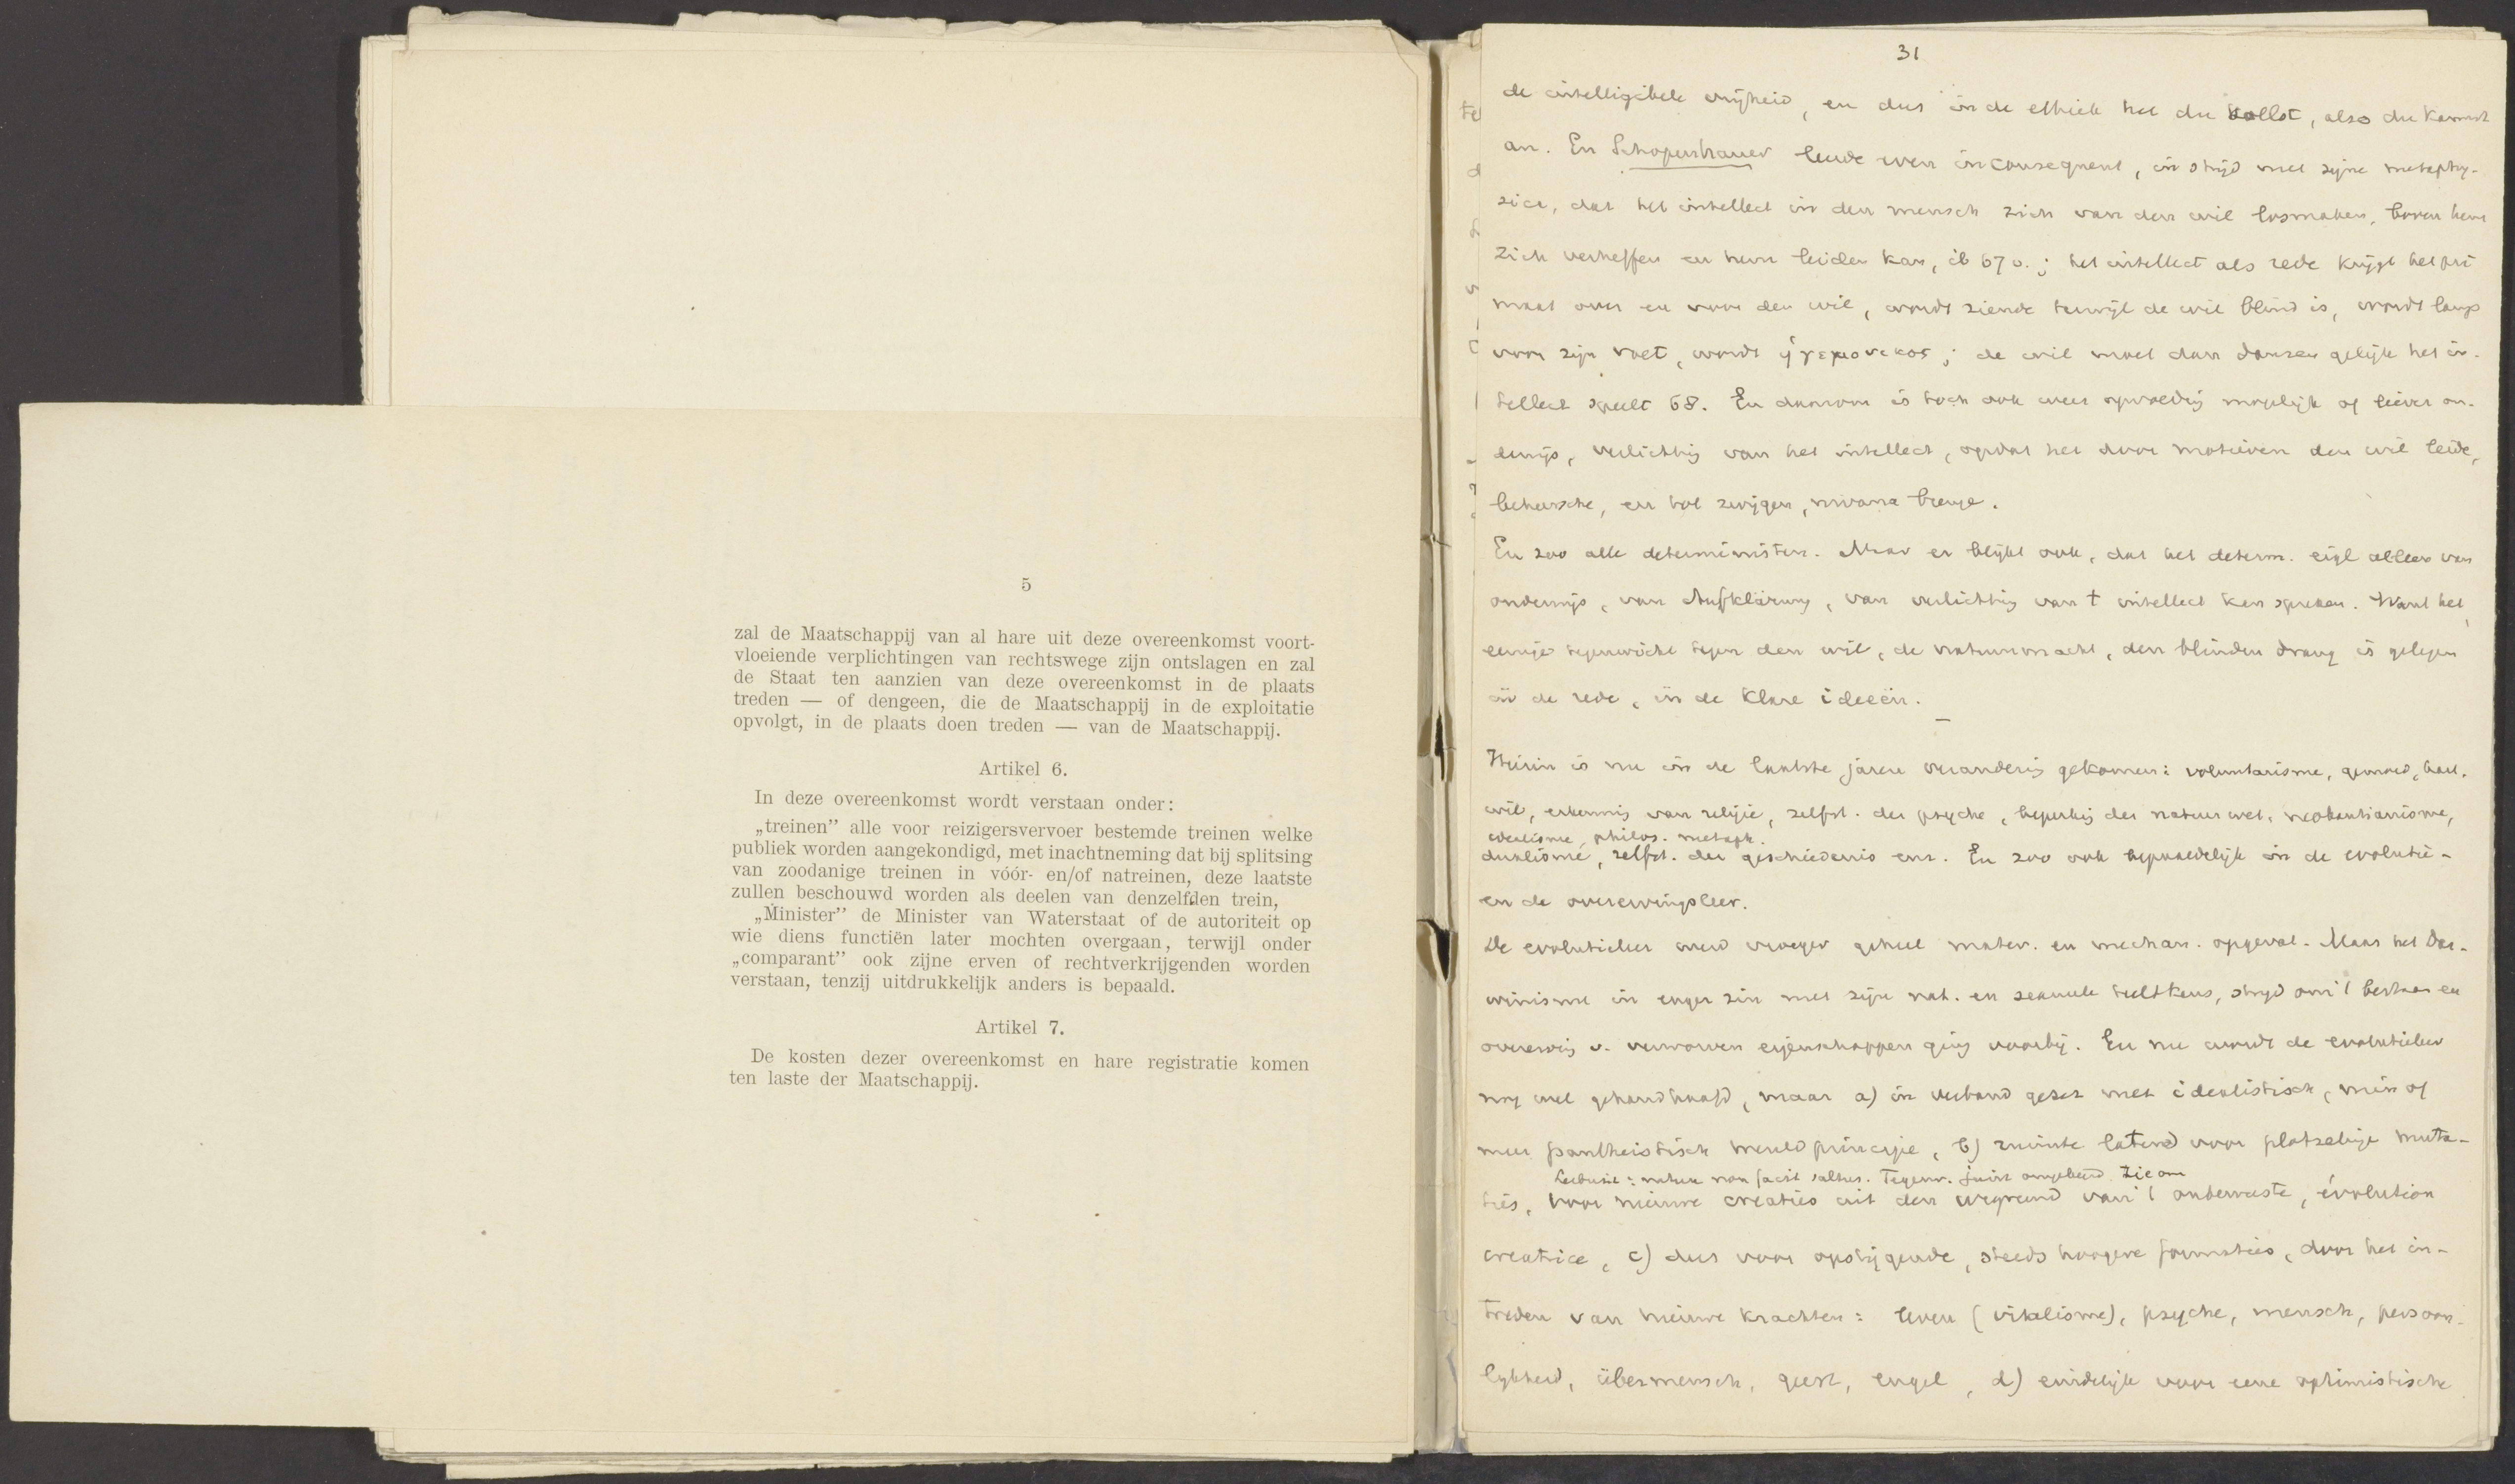 5
zal de Maatschappij van al hare uit deze overeenkomst voort-
vloeiende verplichtingen van rechtswege zijn ontslagen en zal
de Staat ten aanzien van deze overeenkomst in de plaats
treden — of dengeen, die de Maatschappij in de exploitatie
opvolgt, in de plaats doen treden — van de Maatschappij.
Artikel 6.
In deze overeenkomst wordt verstaan onder:
„treinen” alle voor reizigersvervoer bestemde treinen welke
publiek worden aangekondigd, met inachtneming dat bij splitsing
van zoodanige treinen in vóór- en/of natreinen, deze laatste
zullen beschouwd worden als deelen van denzelfden trein,
„Minister” de Minister van Waterstaat of de autoriteit op
wie diens functiën later mochten overgaan, terwijl onder
„comparant” ook zijne erven of rechtverkrijgenden worden
verstaan, tenzij uitdrukkelijk anders is bepaald.
Artikel 7.
De kosten dezer overeenkomst en hare registratie komen
ten laste der Maatschappij.
31
de intelligibele vrijheid, en dus in de ethiek het du sollst, also du kannst
an. En Schopenhauer leerde even inconsequent, in strijd met zijne metaphy-
sica, dat het intellect in den mensch zich van den wil losmaken, boven hem
zich verheffen en hem leiden kan, ib 67 v.; het intellect als rede krijgt het pri
maat over en voor den wil, wordt ziende terwijl de wil blind is, wordt lamp
voor zijn voet, wordt ἡγεμονικος; de wil moet dan dansen gelijk het in-
tellect speelt 68. En daarom is toch ook weer opvoeding mogelijk of liever on-
derwijs, verlichting van het intellect, opdat het door motieven den wil leide,
beheersche, en tot zwijgen, nirvana brenge.
En zoo alle deterministen. Maar er blijkt ook, dat het determ. eigl alleen van
onderwijs, van Aufklärung, van verlichting van t intellect kan spreken. Want het
eenige tegenwicht tegen den wil, de natuurmacht, den blinden drang is gelegen
in de rede, in de klare ideeën.
Hierin is nu in de laatste jaren verandering gekomen: voluntarisme, gemoed, hart,
wil, erkenning van religie, zelfst. der psyche, beperking der natuurwet, neokantianisme,
idealisme, philos. metaph.
dualisme, zelfst. der geschiedenis enz. En zoo ook bepaaldelijk in de evolutie-
en de overervingsleer.
De evolutieleer werd vroeger geheel mater. en mechan. opgevat. Maar het Dar-
winisme in enger zin met zijn nat. en sexueele teeltkeus, strijd om 't bestaan en
overerving v. verworven eigenschappen ging voorbij. En nu wordt de evolutieleer
nog wel gehandhaafd, maar a) in verband gezet met idealistisch, min of
meer pantheistisch wereldprincipe, b) ruimte latend voor plotselinge muta-
Leibniz: natura non facit saltus. Tegenw. juist omgekeerd. Zie om
ties, voor nieuwe creaties uit den oergrond van 't onbewuste, évolution
créatrice, c) dus voor opstijgende, steeds hoogere formaties, door het in-
treden van nieuwe krachten: leven (vitalisme), psyche, mensch, persoon-
lijkheid, übermensch, geest, engel, d) eindelijk voor eene optimistische